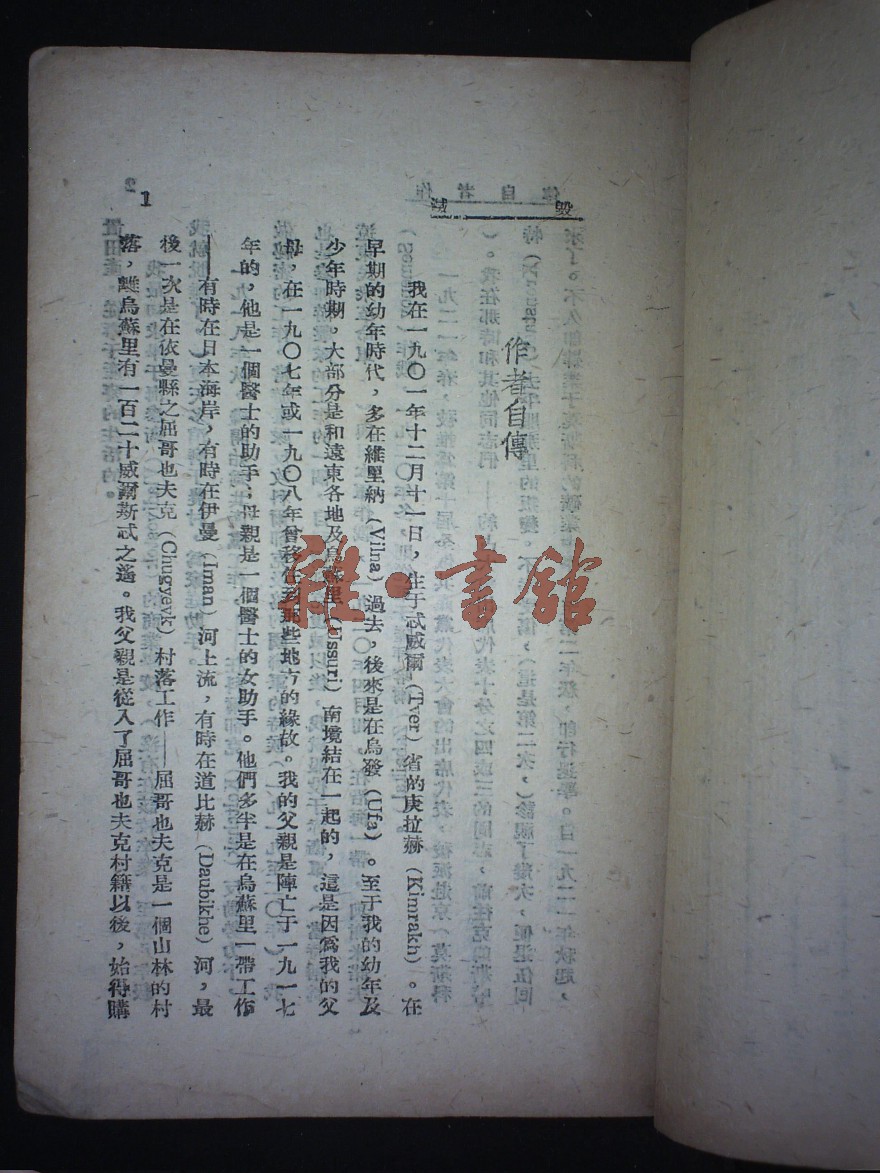 毀滅
作者自傳
我在一九〇一年十二月十一日，生于忒威爾（Tver）省的庚拉赫（Kimrakh）。在
早期的幼年時代，多在維里納（Vilna）過去，後來是在烏發（Ufa）。至于我的幼年及
少年時期，大部分是和遠東各地及烏蘇里（Ussuri）南境結在一起的，這是因爲我的父
母，在一九〇七年或一九〇八年曾移住到那些地方的緣故。我的父親是陣亡于一九一七
年的，他是一個醫士的助手；母親是一個醫士的女助手。他們多半是在烏蘇里一帶工作
——有時在日本海岸，有時在伊曼（Iman）河上流，有時在道比赫（Daubikhe）河，最
後一次是在依曼縣之屈哥也夫克（Chugyevk）村落工作——屈哥也夫克是一個山林的村
落，離烏蘇里有一百二十威爾斯忒之遙。我父親是從入了屈哥也夫克村籍以後，始得購
1
雜·書館